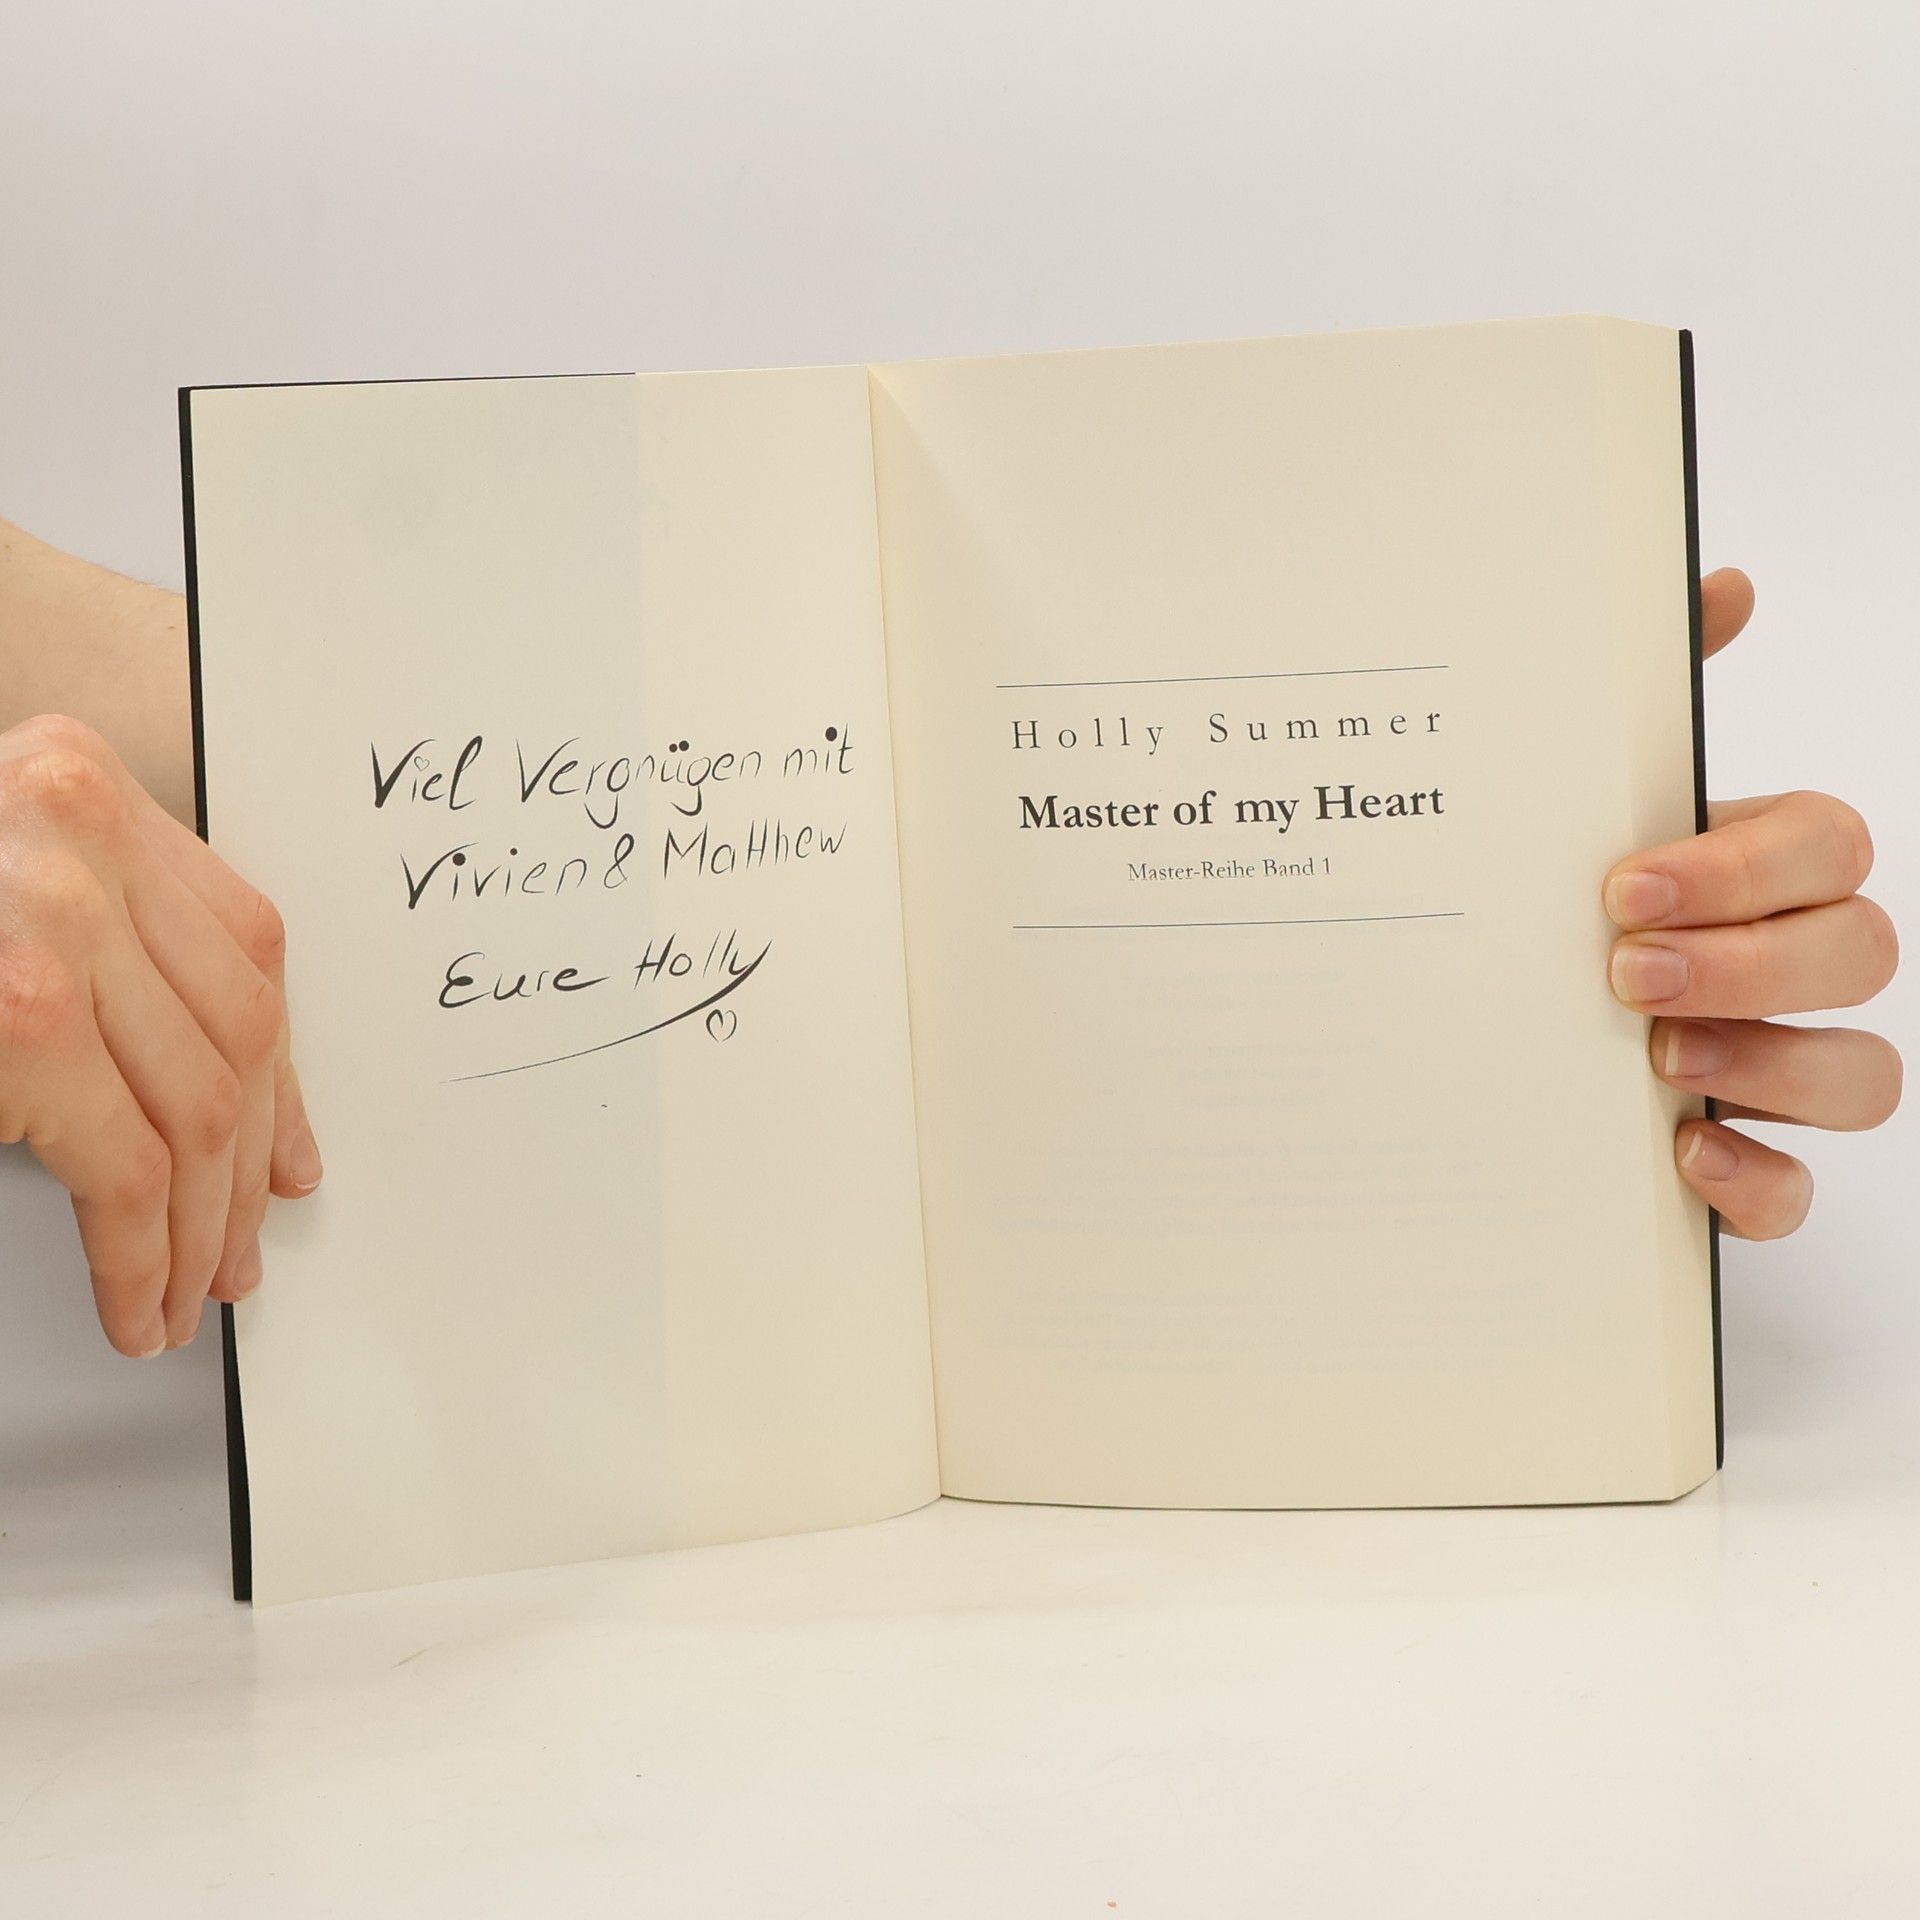 Viel Vergnügen mit
Vivien & Matthew
Eure Holly
Holly Summer
Master of my Heart
Master-Reihe Band 1